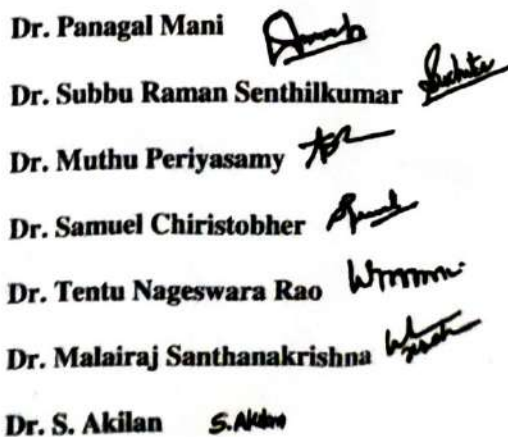 Dr. Panagal Mani
Dr. Subbu Raman Senthilkumar
Dr. Muthu Periyasamy
Dr. Samuel Chiristobher
Dr. Tentu Nageswara Rao
Dr. Malairaj Santhanakrishna
Dr. S. Akilan S. Akilan